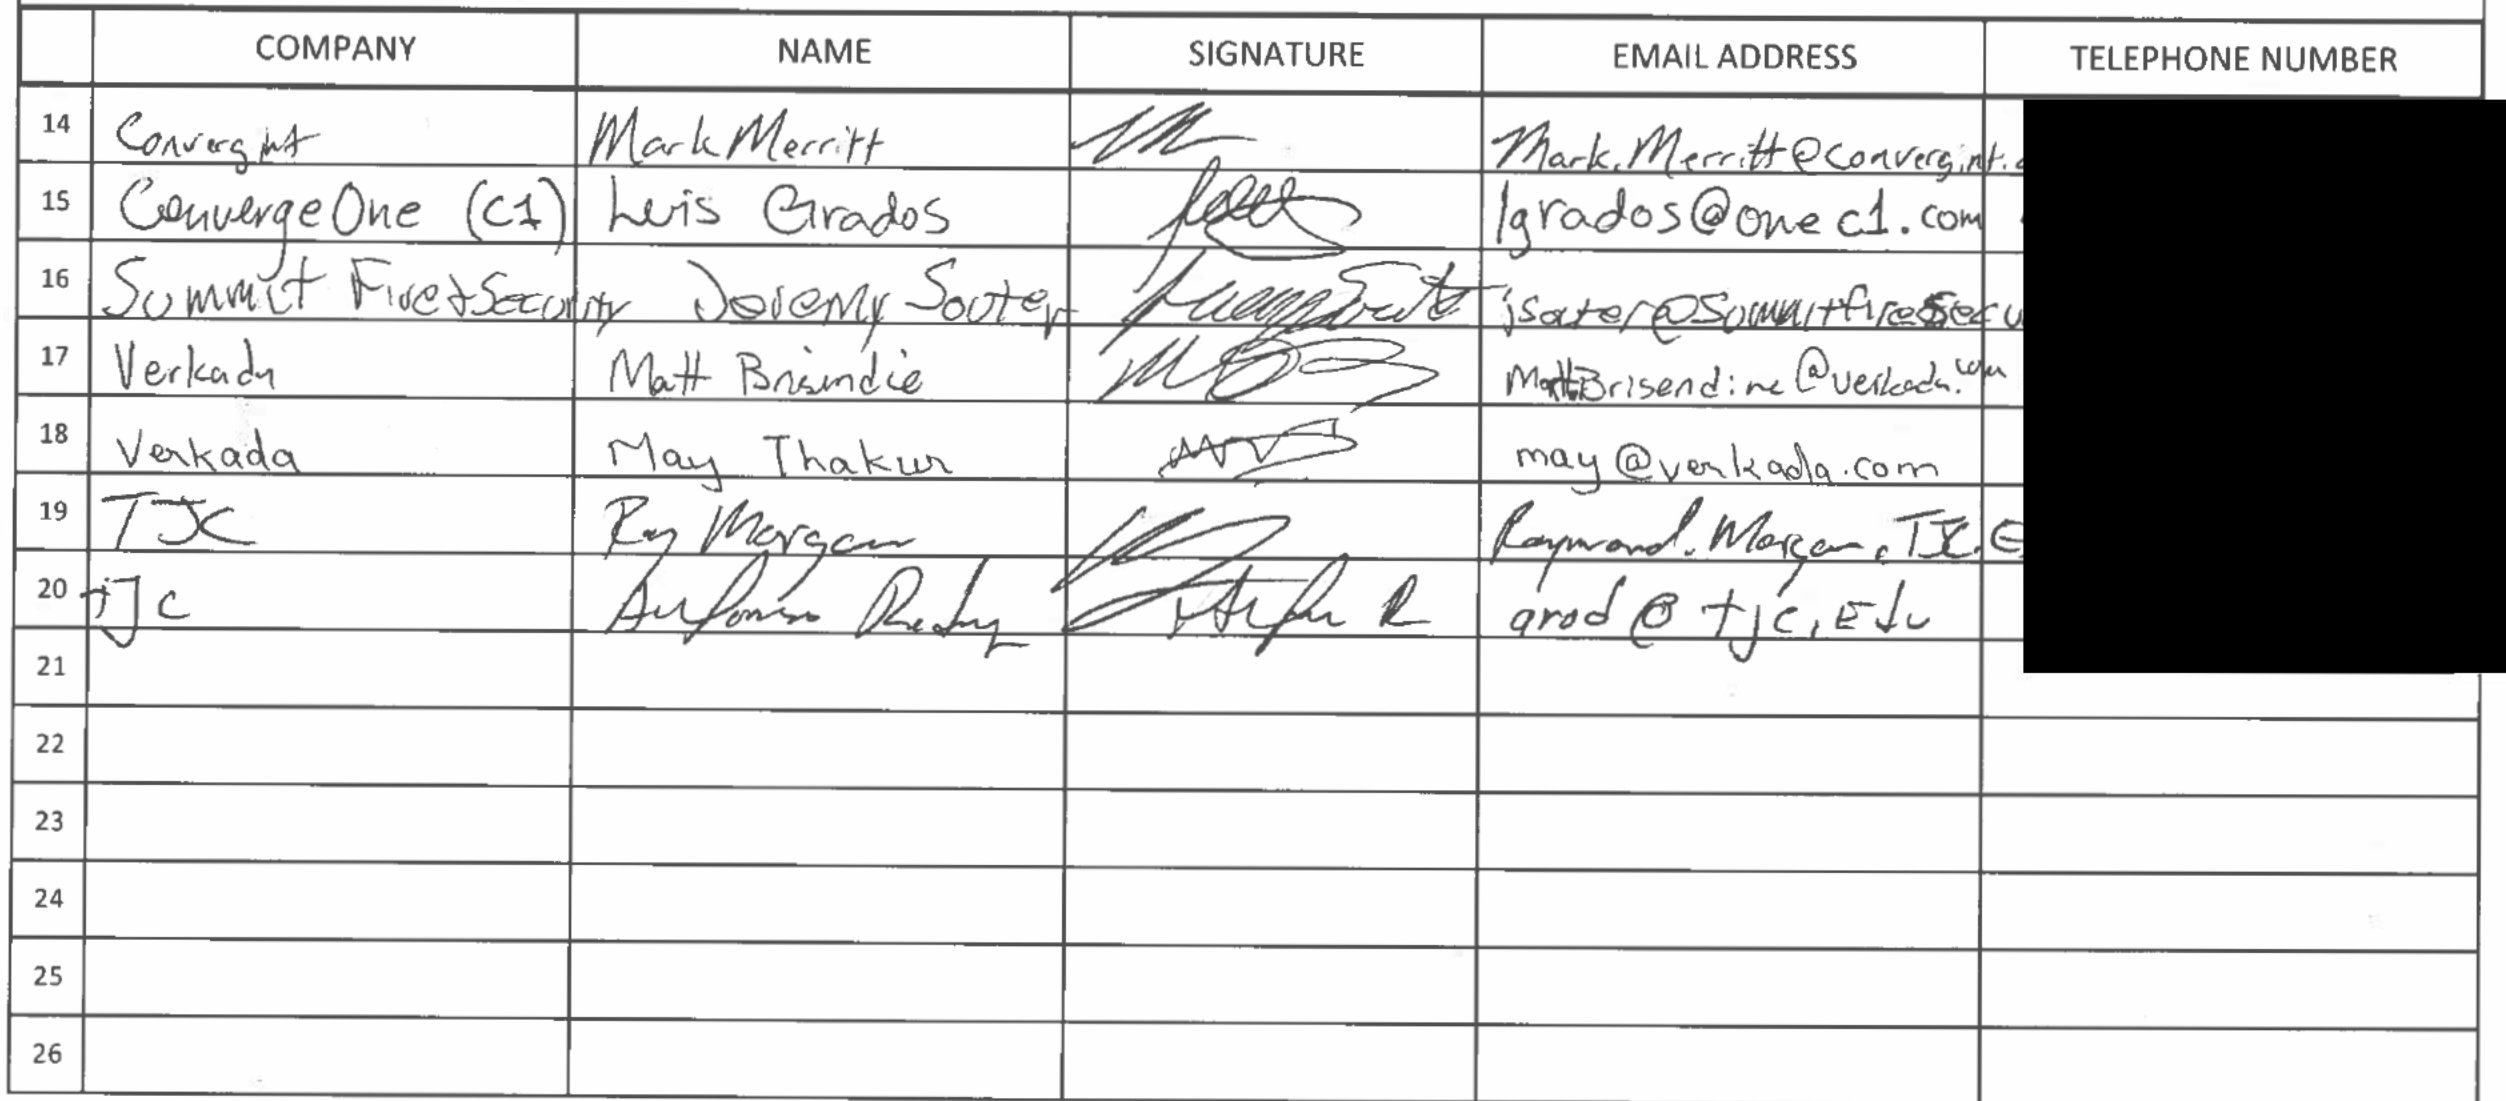 COMPANY NAME SIGNATURE EMAIL ADDRESS TELEPHONE NUMBER
14 Convergint Mark Merritt Mark.Merritt@convergint.
15 ConvergeOne (C1) Luis Grados lgrados@onec1.com
16 Summit Fire & Security Jeremy Souter
17 Verkada Matt @verkada.com
18 Verkada May Thakur may@verkada.com
19 TJC Ray Morgan Raymond.Morgan.TJC.E
20 TJC arod@tjc.Edu
21
22
23
24
25
26